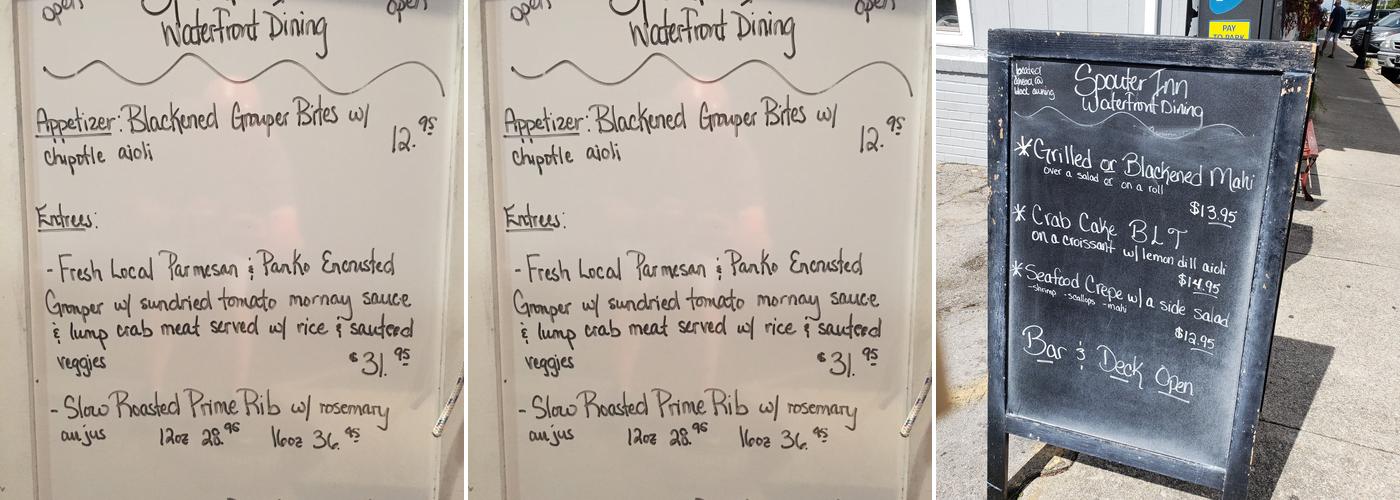 open
open
Waterfront Dining
Appetizer: Blackened Grouper Bites w/
chipotle aioli
12.95
Entrees:
- Fresh Local Parmesan & Panko Encrusted
Grouper w/ sundried tomato mornay sauce
& lump crab meat served w/ rice & sauteed
veggies
$31.95
- Slow Roasted Prime Rib w/ rosemary
au jus 12oz 28.95 16oz 36.95
open
open
Waterfront Dining
Appetizer: Blackened Grouper Bites w/
chipotle aioli
12.95
Entrees:
- Fresh Local Parmesan & Panko Encrusted
Grouper w/ sundried tomato mornay sauce
& lump crab meat served w/ rice & sauteed
veggies
$31.95
- Slow Roasted Prime Rib w/ rosemary
au jus 12oz 28.95 16oz 36.95
PAY
TO PARK
located
ahead @
black awning
Spouter Inn
Waterfront Dining
* Grilled or Blackened Mahi
over a salad or on a roll
$13.95
* Crab Cake BLT
on a croissant w/ lemon dill aioli
$14.95
* Seafood Crepe w/ a side salad
-shrimp -scallops -mahi
$12.95
Bar & Deck Open